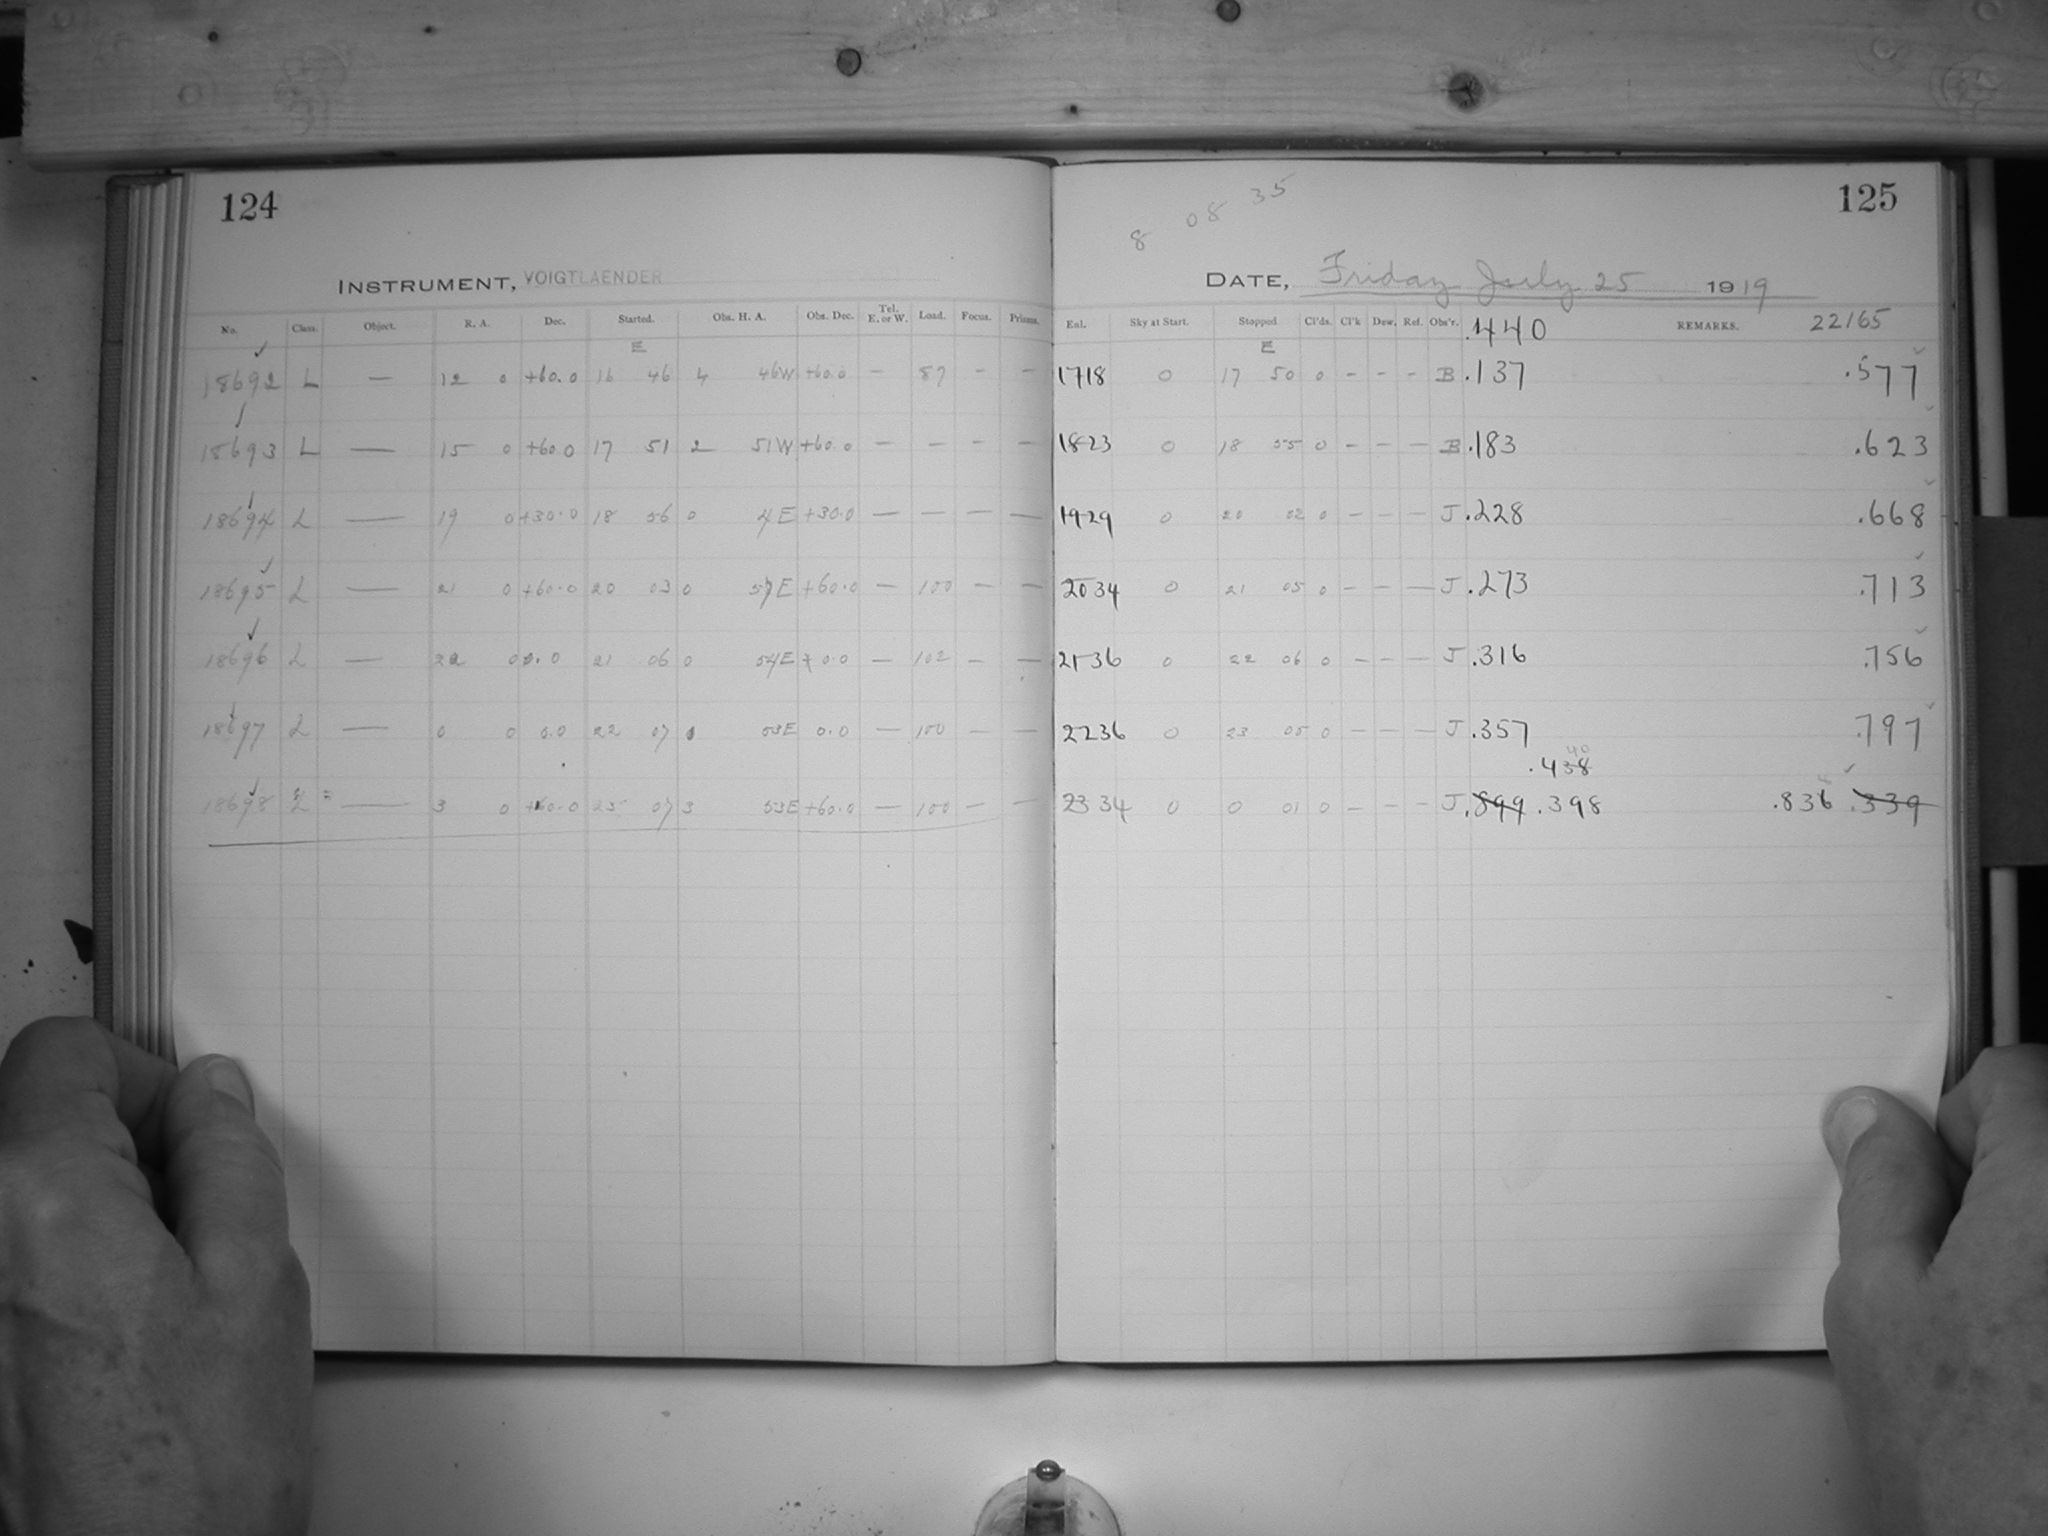 124
INSTRUMENT, VOIGTLAENDER
No. Class. Object. R. A. Dec. Started. Obs. H. A. Obs. Dec. Tel. E. or W. Load. Focus. Prisms.
E
18692 L — 12 0 +60.0 16 46 4 46W +60.0 — 87 — —
18693 L — 15 0 +60.0 17 51 2 51W +60.0 — — — —
18694 L — 19 0 +30.0 18 56 0 4E +30.0 — — — —
18695 L — 21 0 +60.0 20 03 0 57E +60.0 — 100 — —
18696 L — 22 0 0.0 21 06 0 54E +0.0 — 102 — —
18697 L — 0 0 0.0 22 07 53E 0.0 — 100 — —
18698 L = — 3 0 +60.0 23 07 3 53E +60.0 — 100 — —
125
8 08 35
DATE, Friday July 25 1919
Exl. Sky at Start. Stopped Cl'ds. Cl'k Dew. Ref. Obs'r. .440 REMARKS. 22165
E
1718 0 17 50 0 - - - B .137 .577
1823 0 18 55 0 - - - B .183 .623
1929 0 20 02 0 - - - J .228 .668
2034 0 21 05 0 - - - J .273 .713
2136 0 22 06 0 - - - J .316 .756
2236 0 23 05 0 - - - J .357 .797
40
.438
2334 0 0 01 0 - - - J .899 .398 .836 .339